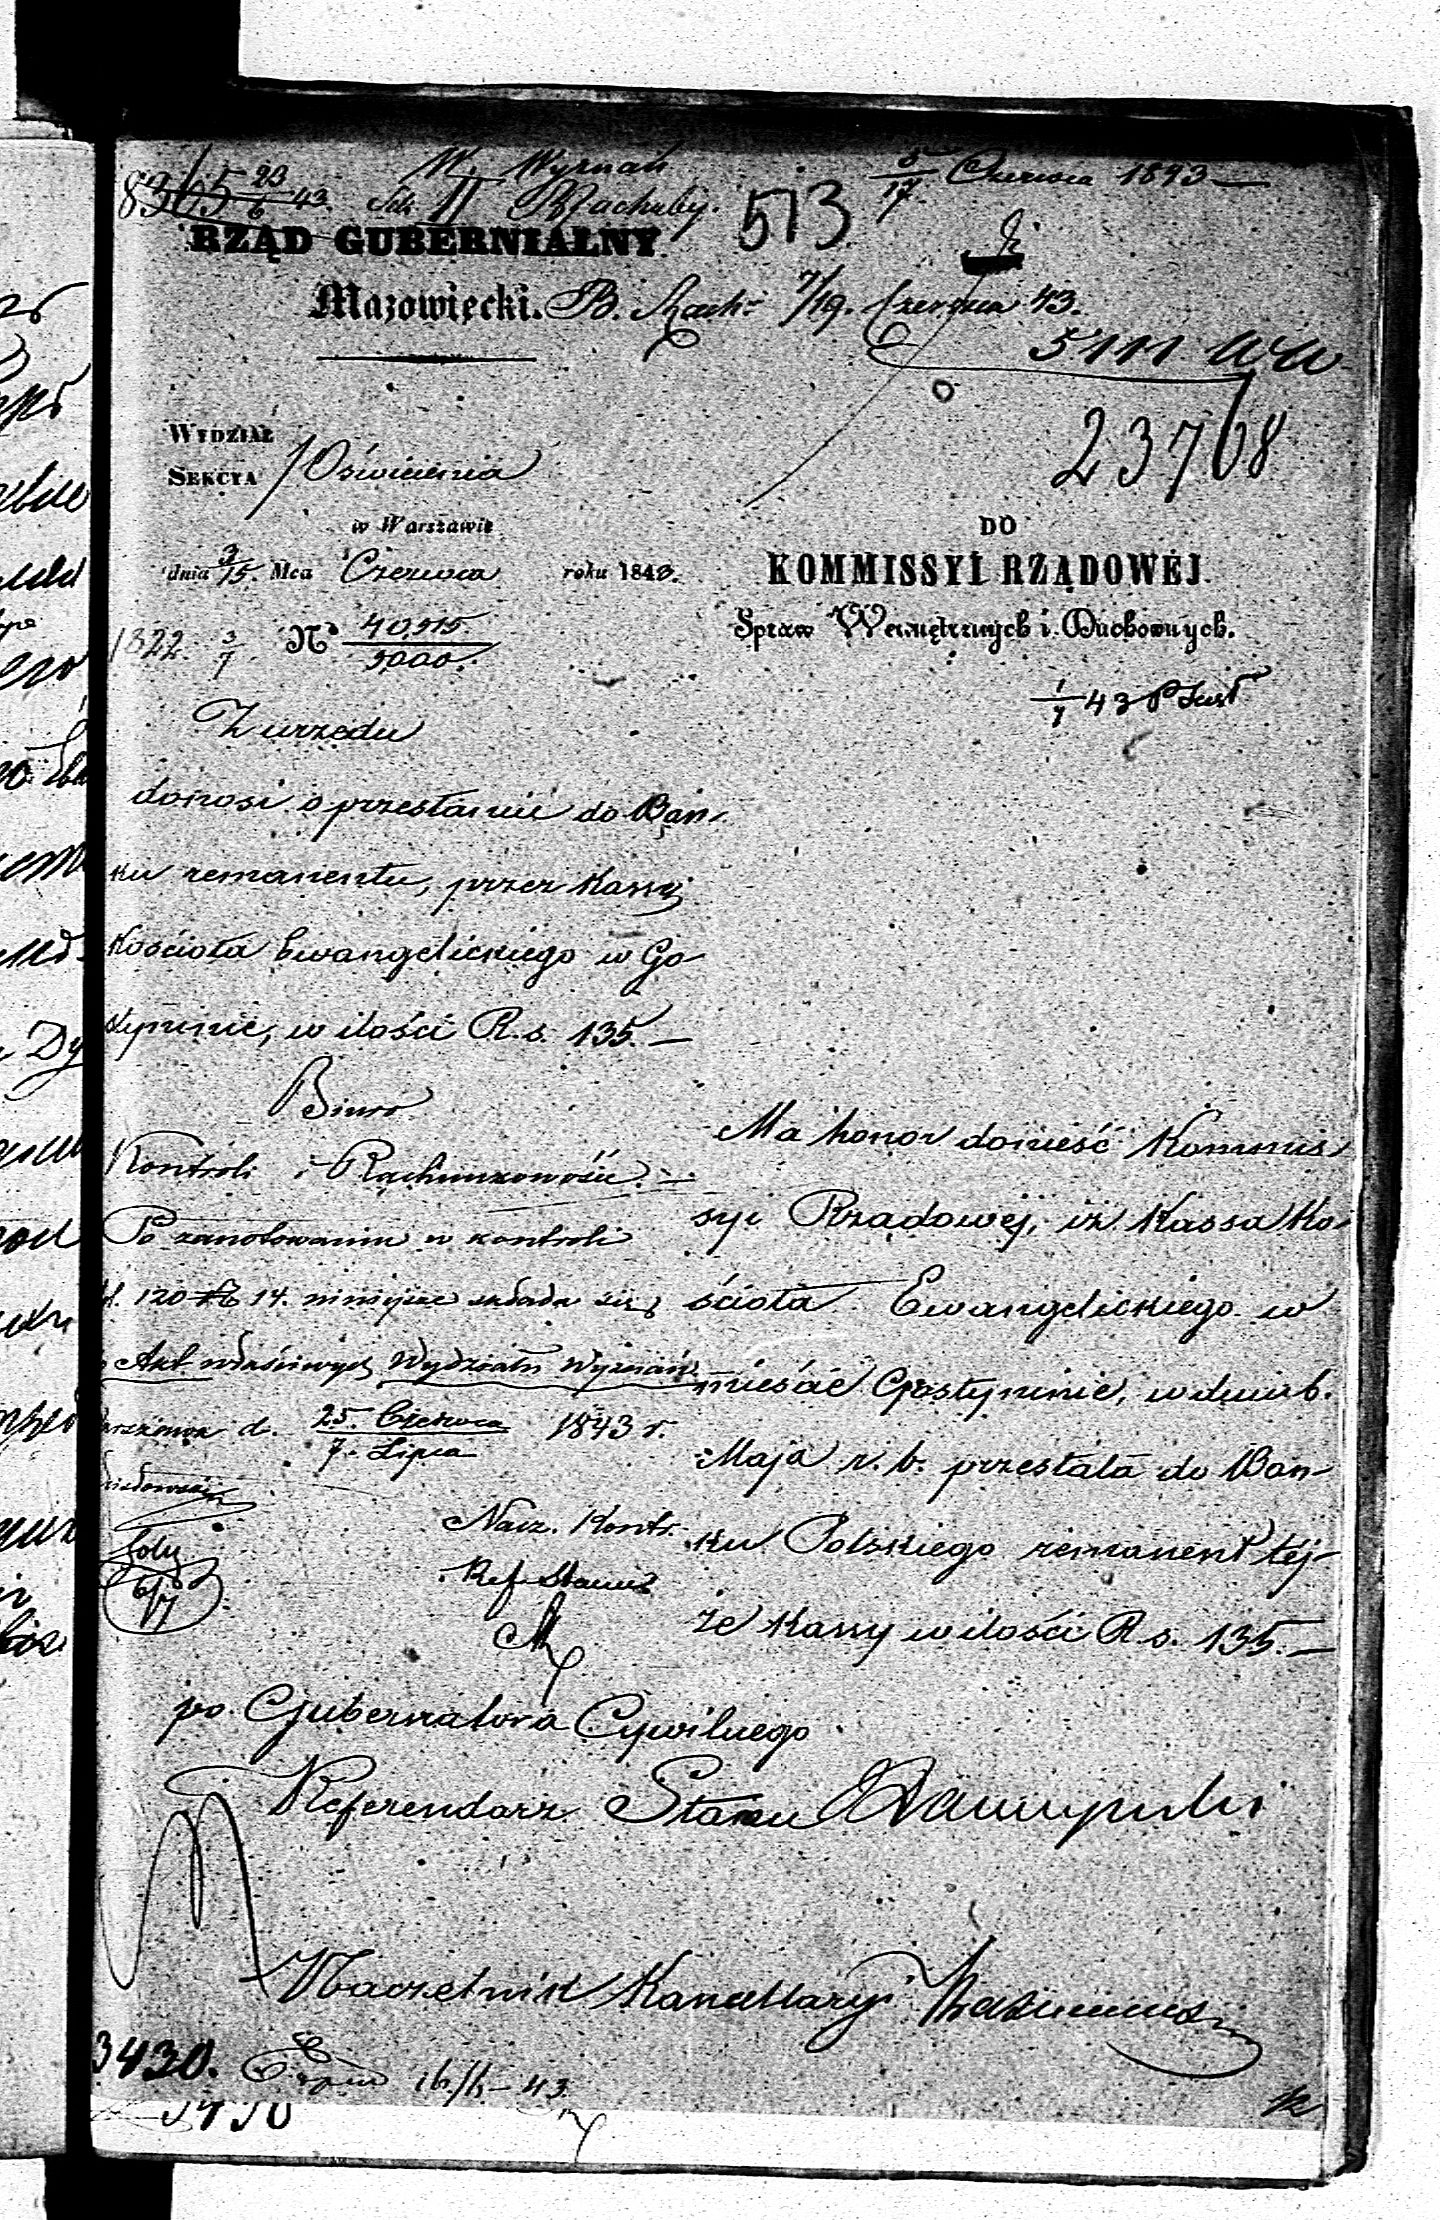 W. Wyznań 5/17 Czerwca 1843
8365 23/6 43. Sek. II Rachuby. 513
RZĄD GUBERNIALNY
Mazowiecki. B. Rach. 7/19. Czerwca 43.
23768
WYDZIAŁ
SEKCYA Oświecenia
w Warszawie
dnia 3/15. Mca Czerwca roku 1843.
1322. 3/7 Nº 40,915/5000.
DO
KOMMISSYI RZĄDOWÉJ
Spraw Wewnętrznych i Duchownych.
1/7 43
Z urzędu
donosi o przesłanie do Ban-
ku remanentu, przez Kassę
Kościoła Ewangelickiego w Go-
styninie, w ilości R. s. 135.—
Biuro
Kontroli i Rachunkowości.—
Po zanotowaniu w kontroli
120 14. niniejsze składa się
Akt właściwych Wydziału Wyznań
d. 25. Czerwca/7. Lipca 1843 r.
Nacz. Kontr.
Ref. Stanu
6/7
Ma honor donieść Kommis-
syi Rządowej, iż Kassa Ko-
ścioła Ewangelickiego w
mieście Gostyninie, w dniu 6.
Maja r. b. przesłała do Ban-
ku Polskiego remanent téj-
że Kassy w ilości R. s. 135.—
po. Gubernatora Cywilnego
Referendarz Stanu
Naczelnik Kancellaryi
3430. 16/6 - 43